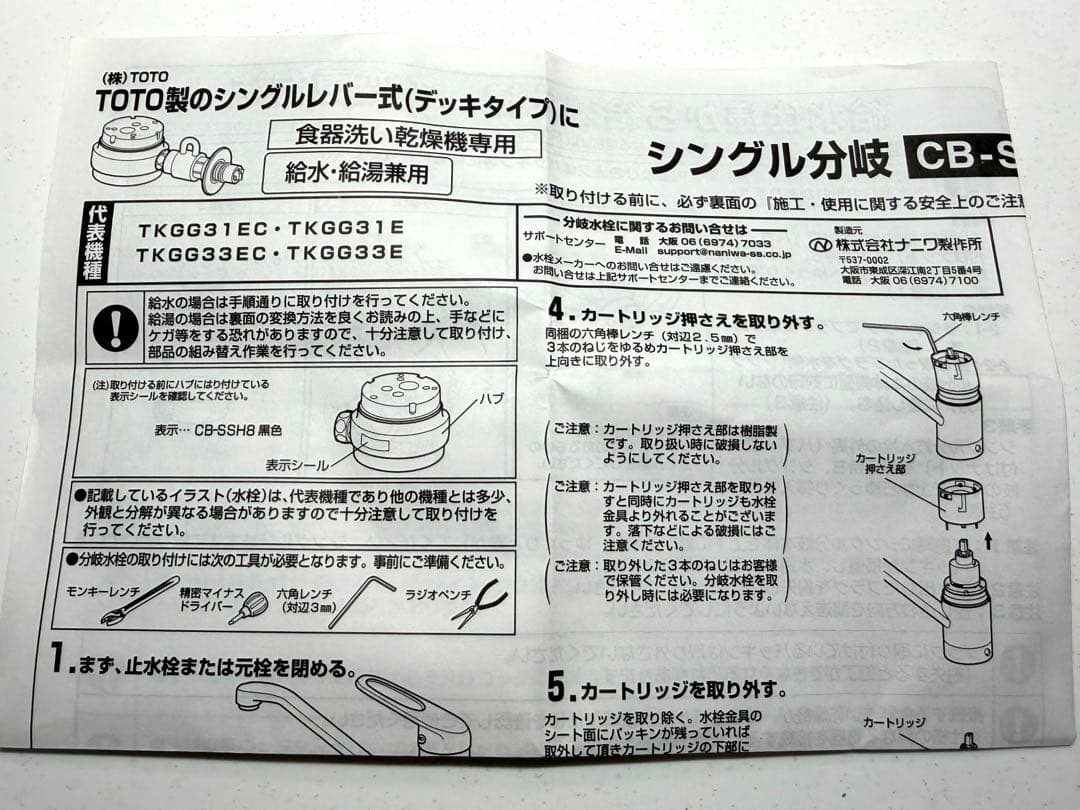 (株)TOTO
TOTO製のシングルレバー式(デッキタイプ)に
食器洗い乾燥機専用
給水・給湯兼用
シングル分岐 CB-S
※取り付ける前に、必ず裏面の『施工・使用に関する安全上のご注
代表機種
TKGG31EC・TKGG31E
TKGG33EC・TKGG33E
分岐水栓に関するお問い合せは
サポートセンター 電 話 大阪 06(6974)7033
E-Mail support@naniwa-ss.co.jp
●水栓メーカーへのお問い合せはご遠慮ください。
お問い合せは上記サポートセンターまでご連絡ください。
製造元
株式会社ナニワ製作所
〒537-0002
大阪市東成区深江南2丁目5番4号
電話 大阪 06(6974)7100
給水の場合は手順通りに取り付けを行ってください。
給湯の場合は裏面の変換方法を良くお読みの上、手などに
ケガ等をする恐れがありますので、十分注意して取り付け、
部品の組み替え作業を行ってください。
(注)取り付ける前にハブにはり付けている
表示シールを確認してください。
表示… CB-SSH8 黒色
ハブ
表示シール
●記載しているイラスト(水栓)は、代表機種であり他の機種とは多少、
外観と分解が異なる場合がありますので十分注意して取り付けを
行ってください。
●分岐水栓の取り付けには次の工具が必要となります。事前にご準備ください。
モンキーレンチ
精密マイナス
ドライバー
六角レンチ
(対辺3㎜)
ラジオペンチ
1.まず、止水栓または元栓を閉める。
4.カートリッジ押さえを取り外す。
同梱の六角棒レンチ(対辺2.5㎜)で
3本のねじをゆるめカートリッジ押さえ部を
上向きに取り外す。
六角棒レンチ
ご注意:カートリッジ押さえ部は樹脂製
です。取り扱い時に破損しない
ようにしてください。
カートリッジ
押さえ部
ご注意:カートリッジ押さえ部を取り外
すと同時にカートリッジも水栓
金具より外れることがございま
す。落下などによる破損にはご
注意ください。
ご注意:取り外した3本のねじはお客様
で保管ください。分岐水栓を取
り外し時には必要になります。
5.カートリッジを取り外す。
カートリッジを取り除く。水栓金具の
シート面にパッキンが残っていれば
取外して頂きカートリッジの下部に
カートリッジ